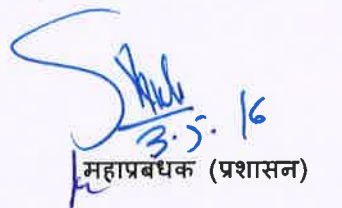 3.5.16
महाप्रबंधक (प्रशासन)